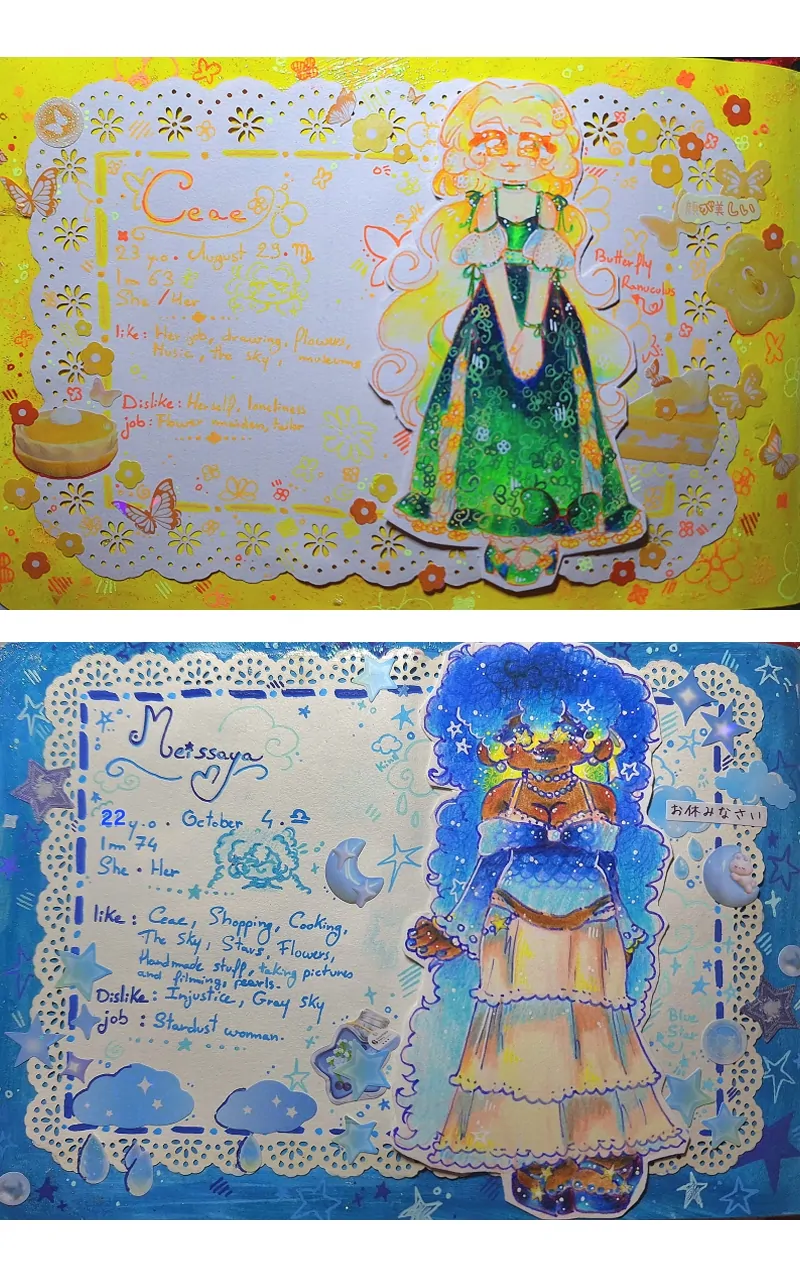 Ceae
23 y.o. August 23. ♍
1m 63
She / Her
like: Her job, drawing, flowers,
Music, the sky, museums
Dislike: Herself, loneliness
job: Flower maiden, tailor
Soft
Butterfly
Ranuculus
が美しい
Meissaya
22 y.o. October 4. ♎
1m 74
She • Her
like: Ceae, Shopping, Cooking,
The sky, Stars, Flowers,
Handmade stuff, taking pictures
and filming, pearls.
Dislike: Injustice, Gray sky
job: Stardust woman.
Kind
お休みなさい
Blue
Star